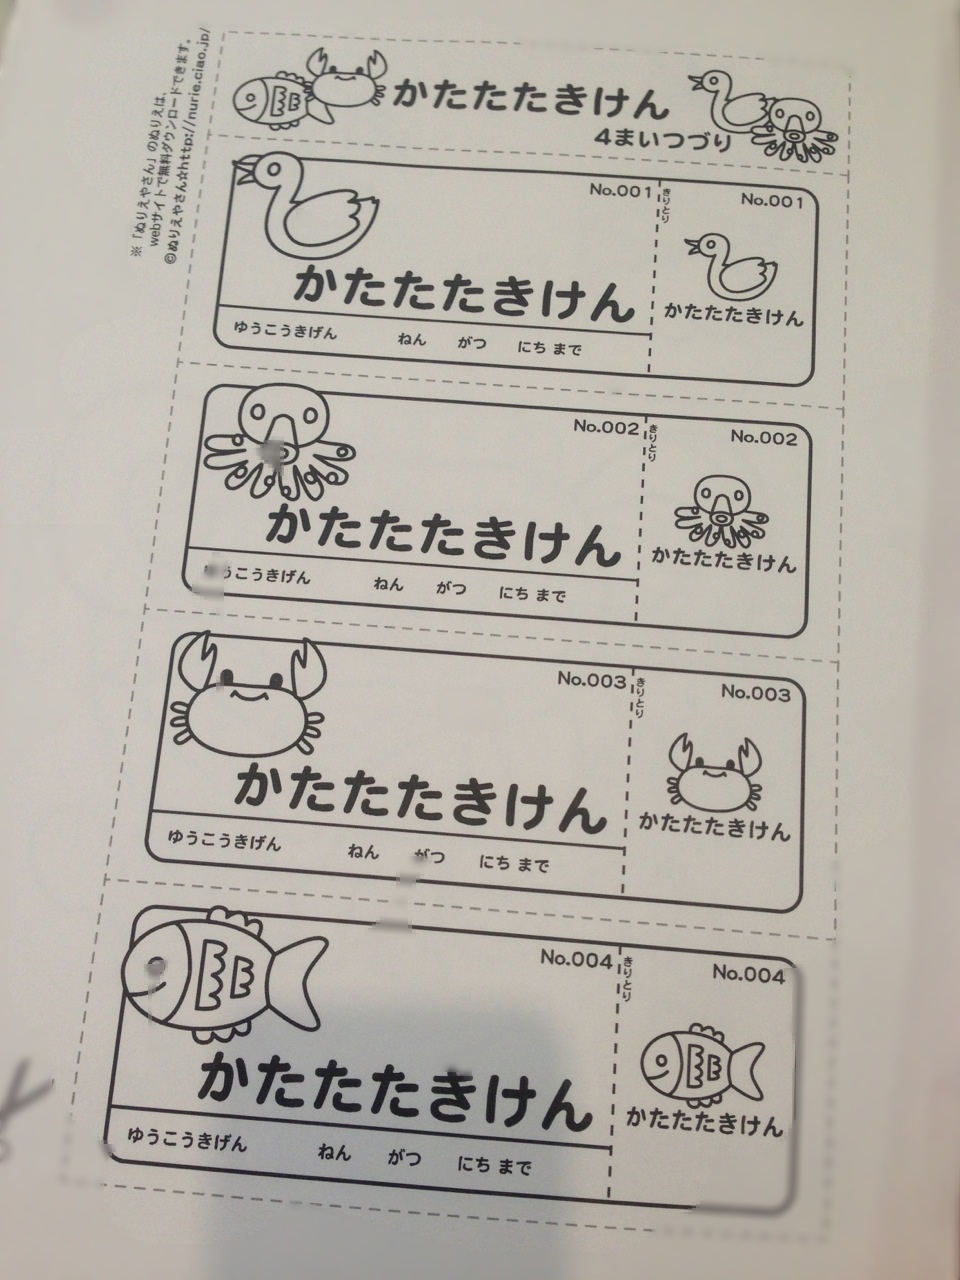 ※「ぬりえやさん」のぬりえは、
webサイトで無料ダウンロードできます。
©ぬりえやさん☆http://nurie.ciao.jp/
かたたたきけん
4まいつづり
No.001
きりとり
No.001
かたたたきけん
かたたたきけん
ゆうこうきげん ねん がつ にち まで
No.002
きりとり
No.002
かたたたきけん
かたたたきけん
うこうきげん ねん がつ にち まで
No.003
きりとり
No.003
かたたたきけん
かたたたきけん
ゆうこうきげん ねん がつ にち まで
No.004
きりとり
No.004
かたたたきけん
かたたたきけん
ゆうこうきげん ねん がつ にち まで